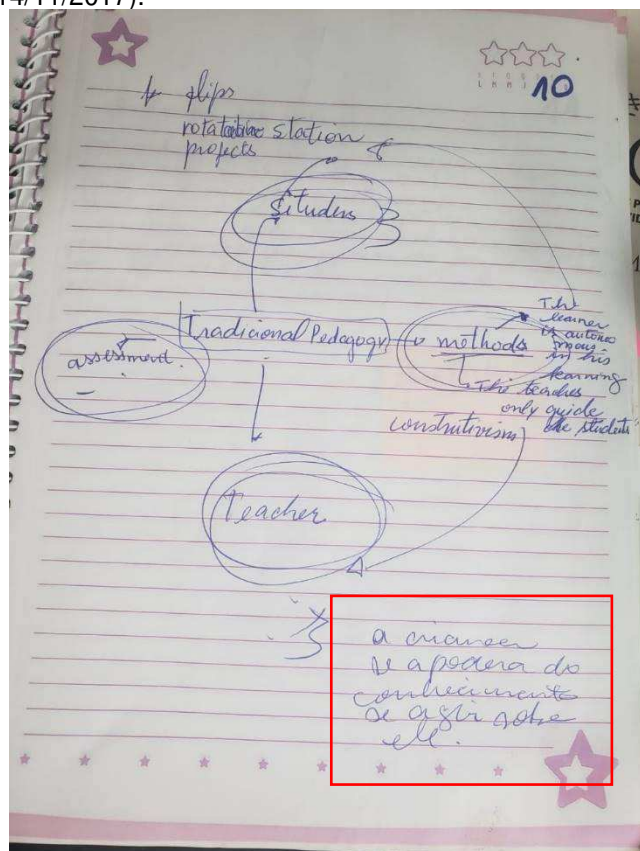 14/11/2017).
10
flips
station
projects
Studens
Tradicional Pedagogy
methods
assessment
The
learner
is autono
mous
in his
learning
The teaches
only guide
the students
construtivism
Teacher
a crianças
se apodera do
conhecimento
se agir sobre
ele.